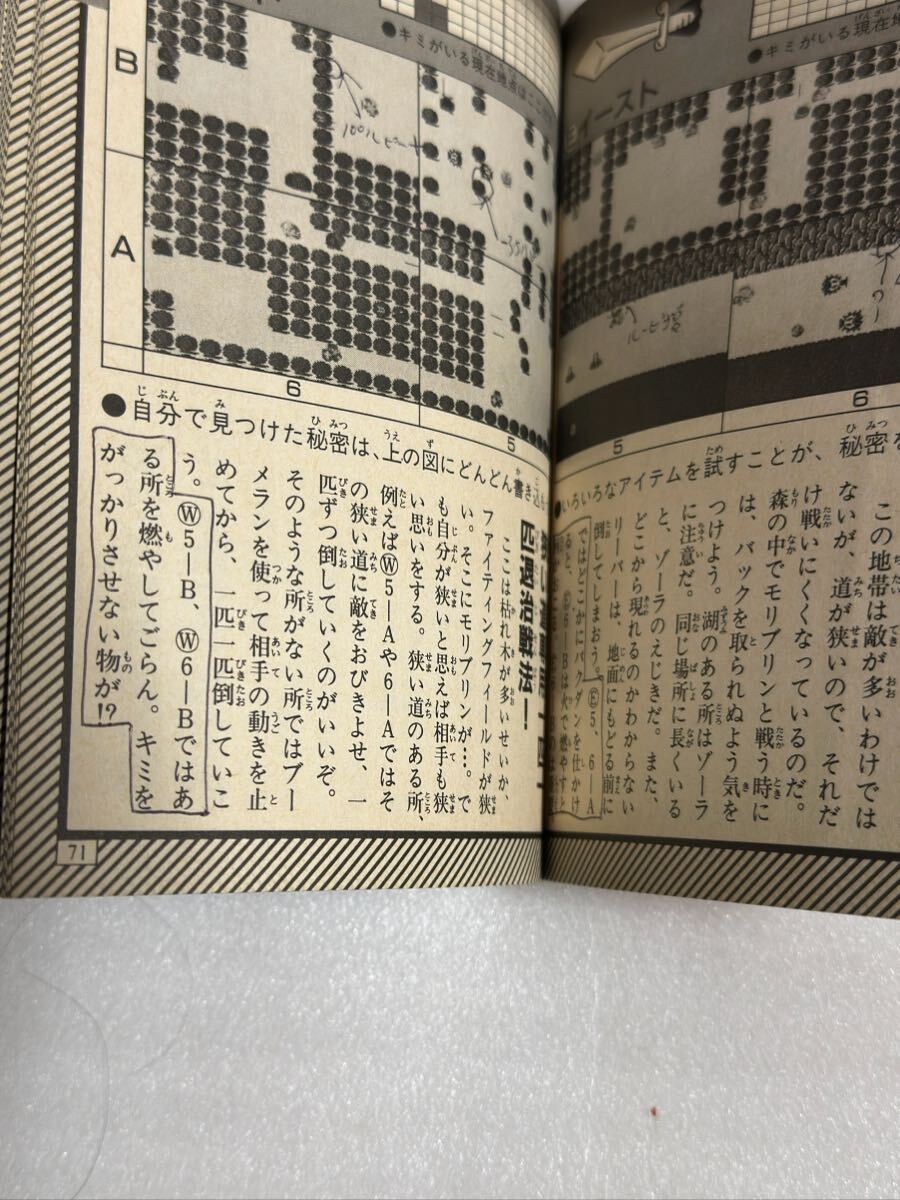 ●キミがいる現在地点はここ
B
A
6
5
100ルピー
●自分で見つけた秘密は、上の図にどんどん書き込も
匹退治戦法!
ここは枯れ木が多いせいか、
ファイティングフィールドが狭
い。そこにモリブリンが…。で
も自分が狭いと思えば相手も狭
い思いをする。狭い道のある所、
例えばⓌ5―Aや6―Aではそ
の狭い道に敵をおびきよせ、一
匹ずつ倒していくのがいいぞ。
そのような所がない所ではブー
メランを使って相手の動きを止
めてから、一匹一匹倒していこ
う。Ⓦ5―B、Ⓦ6―Bではあ
る所を燃やしてごらん。キミを
がっかりさせない物が!?
71
●キミがいる現在地
イースト
5
6
●いろいろなアイテムを試すことが、秘密を
この地帯は敵が多いわけでは
ないが、道が狭いので、それだ
け戦いにくくなっているのだ。
森の中でモリブリンと戦う時に
は、バックを取られぬよう気を
つけよう。湖のある所はゾーラ
に注意だ。同じ場所に長くいる
と、ゾーラのえじきだ。また、
どこから現れるのかわからない
リーバーは、地面にもどる前に
倒してしまおう。Ⓔ5、6―A
ではどこかにバクダンを仕かけ
ると、Ⓔ6―Bは火で燃やすと